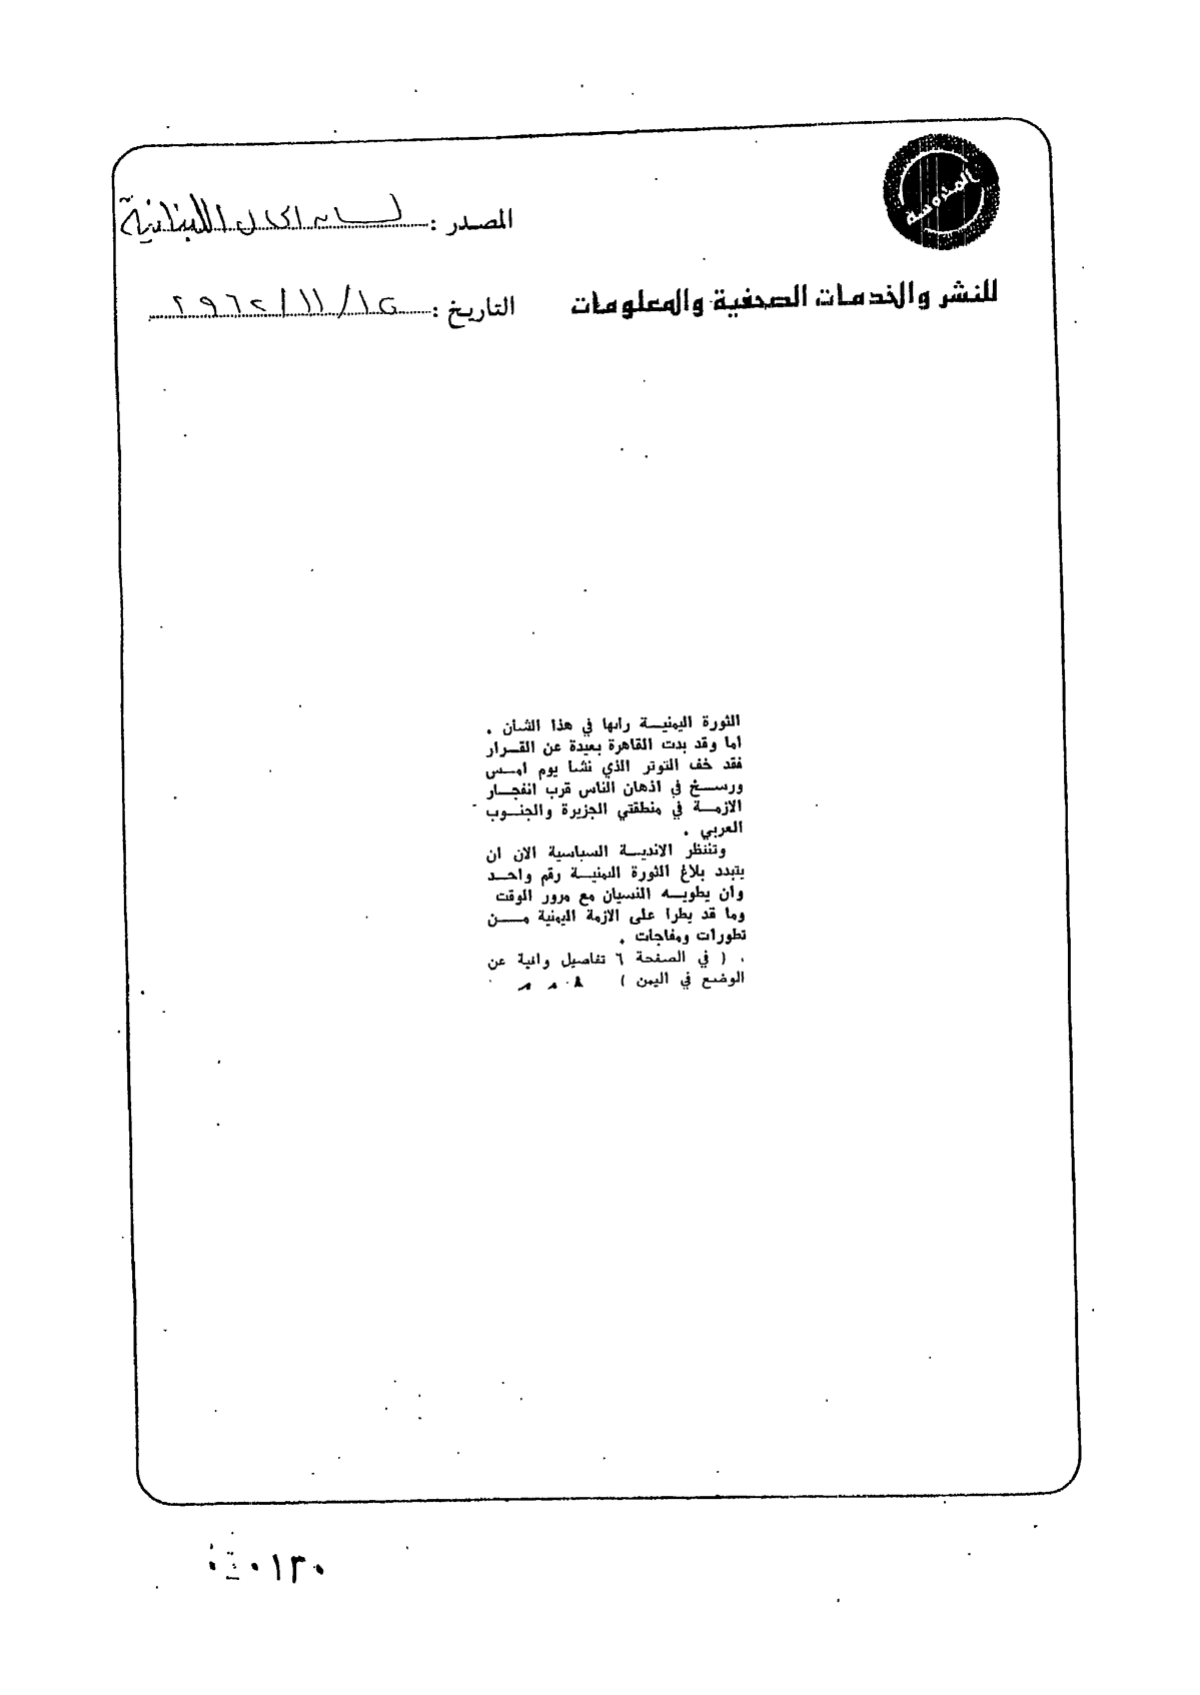 المصدر : لسان الحال اللبنانية
للنشر والخدمات الصحفية والمعلومات
التاريخ :
الثورة اليمنيـــة رايها في هذا الشأن .
اما وقد بدت القاهرة بعيدة عن القـــرار
فقد خف التوتر الذي نشا يوم امـــس
ورســـخ في اذهان الناس قرب انفجـــار
الازمـــة في منطقتي الجزيرة والجنـــوب
العربي .
وتنتظر الانديـــة السياسية الان ان
يتبدد بلاغ الثورة اليمنيـــة رقم واحـــد
وان يطويـــه النسيان مع مرور الوقت
وما قد يطرا على الازمة اليمنية مـــن
تطورات ومفاجات .
( في الصفحة ٦ تفاصيل وافية عن
الوضع في اليمن )